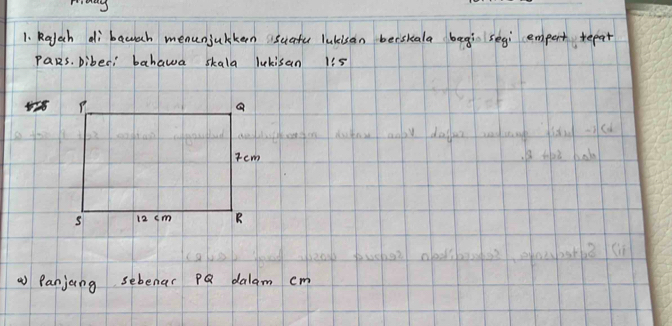 1. Rajah di bawah menunjukkan suatu lukisan berskala bagi segi empat tepat
PQRS. Diberi bahawa skala lukisan 1:5
P Q
7 cm
S 12 cm R
a) Panjang sebenar PQ dalam cm